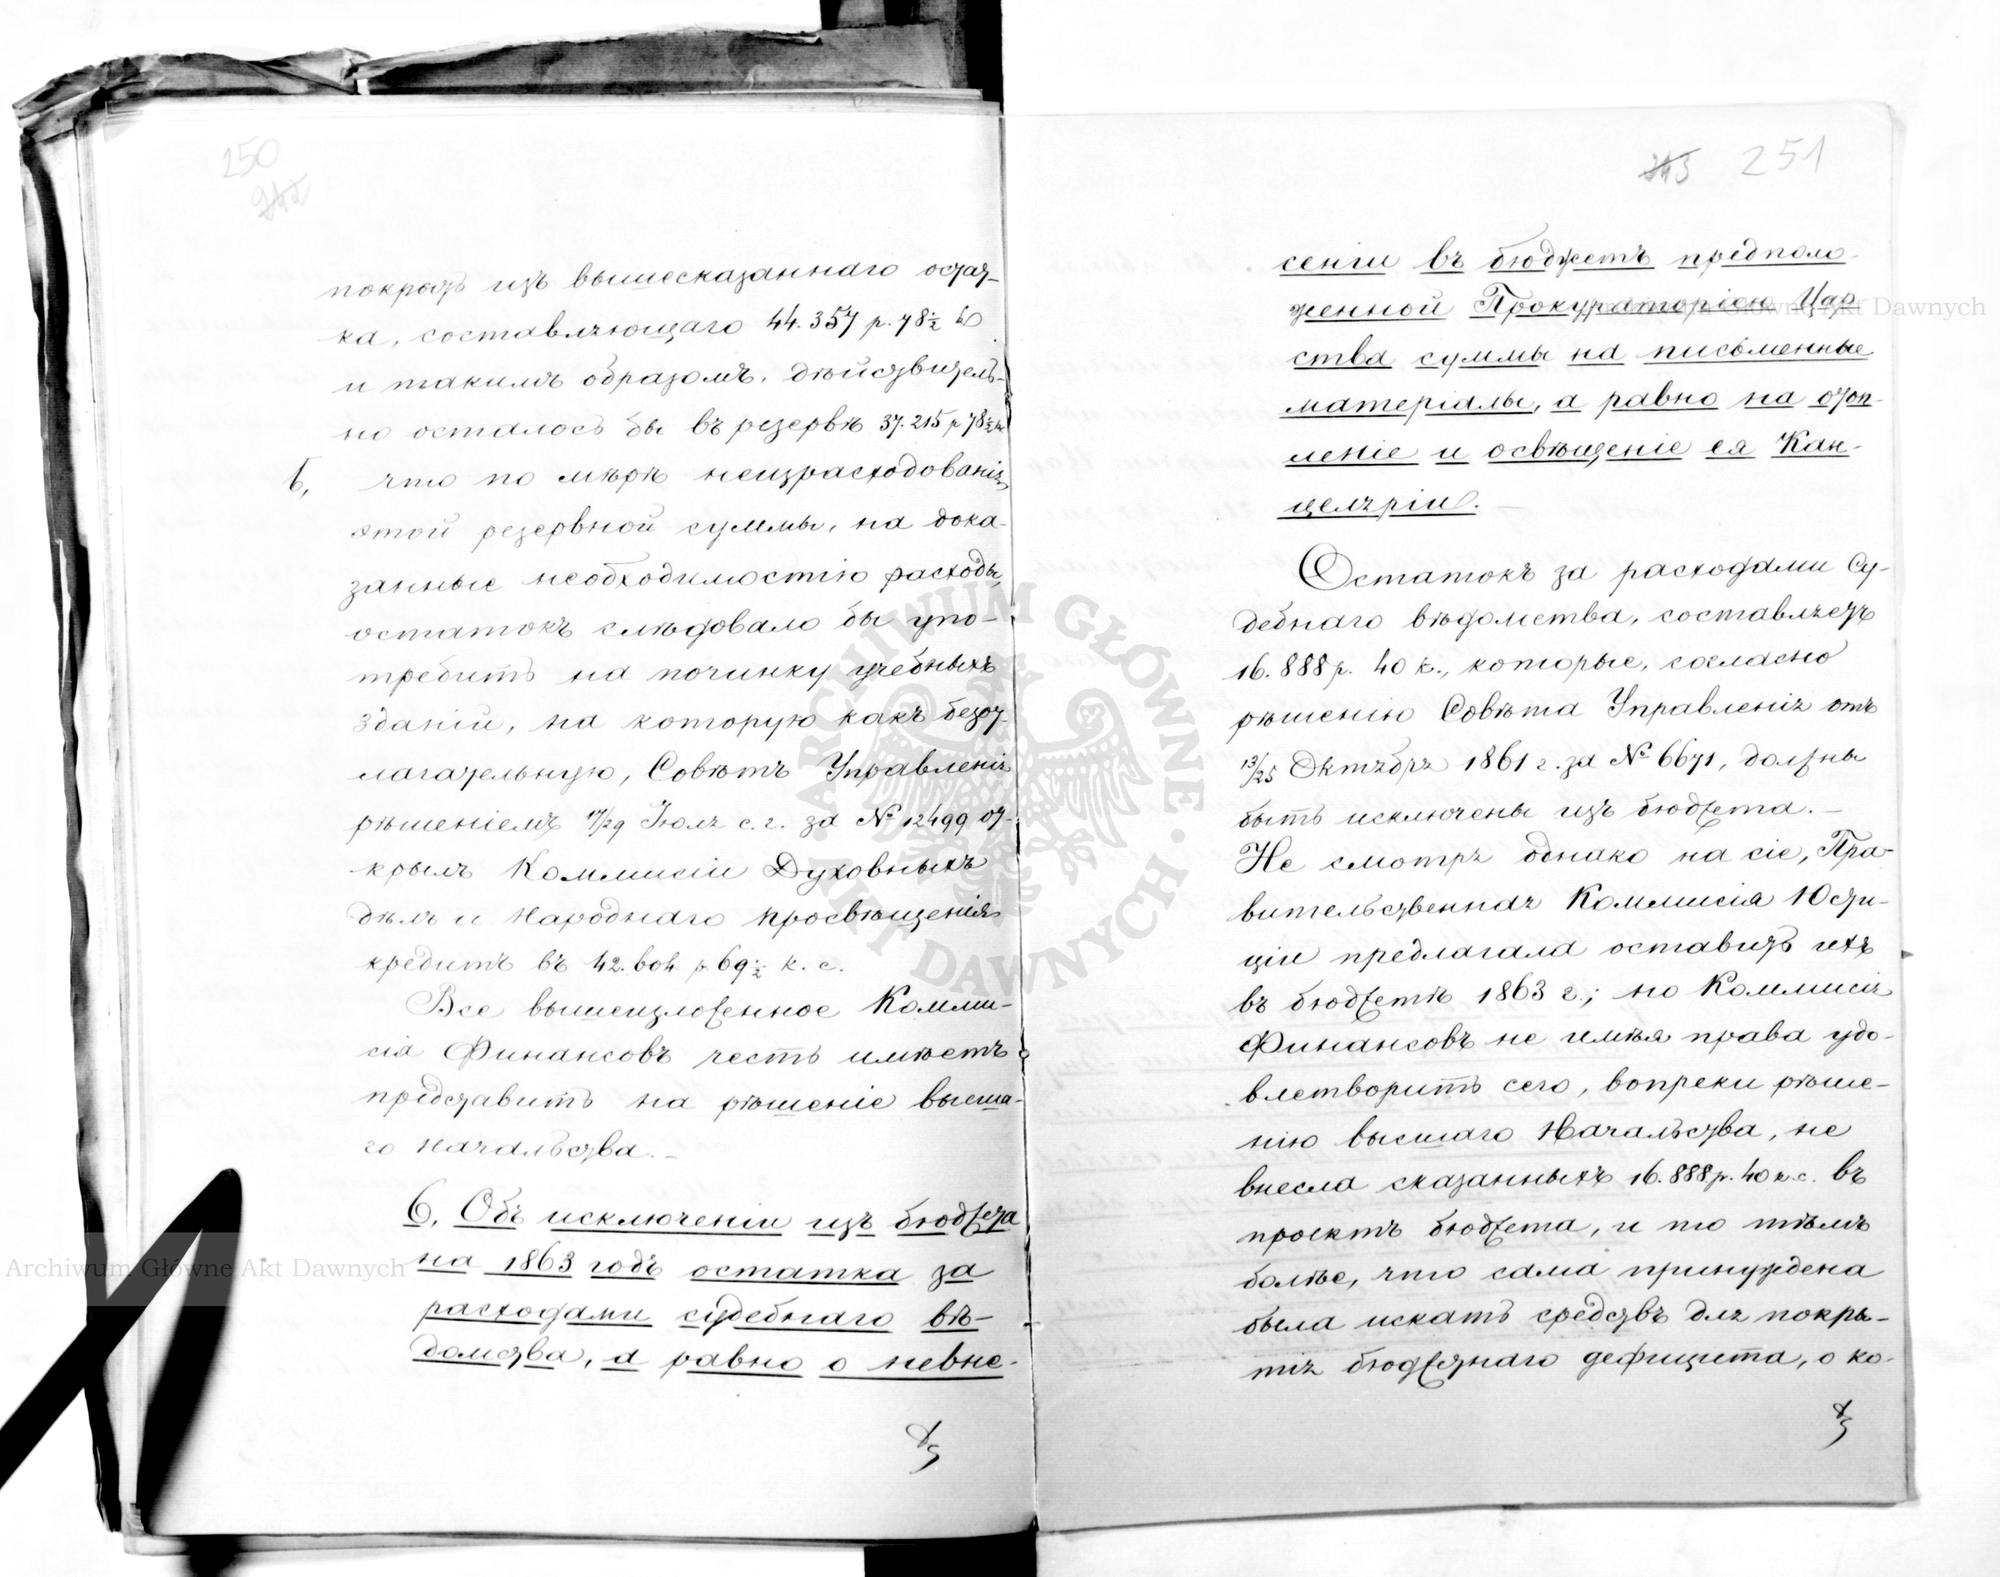 250
242
покрыть изъ вышесказаннаго остат-
ка, составляющаго 44.357 р. 78½ к
и такимъ образомъ, дѣйствитель-
но осталось бы въ резервѣ 37.215 р 78½ к
б, что по мѣрѣ неизрасходованія
этой резервной суммы, на дока-
занные необходимостію расходы,
остатокъ слѣдовало бы упо-
требить на починку учебныхъ
зданій, на которую какъ безот-
лагательную, Совѣтъ Управленія
рѣшеніемъ 17/29 Іюля с. г. за № 12499 от-
крылъ Коммисіи Духовныхъ
дѣлъ и Народнаго просвѣщенія
кредитъ въ 42.604 р. 69½ к. с.
Все вышеизложенное Комми-
сія Финансовъ честь имѣетъ
представить на рѣшеніе высша-
го начальства.—
6, Объ исключеніи изъ бюджета
на 1863 годъ остатка за
расходами судебнаго вѣ-
домства, а равно о невне-
243 251
сеніи въ бюджетъ предполо-
женной Прокураторіею Цар-
ства суммы на письменные
матеріалы, а равно на отоп-
леніе и освѣщеніе ея Кан-
целяріи.—
Остатокъ за расходами Су-
дебнаго вѣдомства, составляетъ
16.888 р. 40 к., которые, согласно
рѣшенію Совѣта Управленія отъ
13/25 Октября 1861 г. за № 6671, должны
быть исключены изъ бюджета.—
Не смотря однако на сіе, Пра-
вительственная Коммисія Юсти-
ціи предлагала оставить ихъ
въ бюджетѣ 1863 г.; но Коммисія
Финансовъ не имѣя права удо-
влетворить сего, вопреки рѣше-
нію высшаго Начальства, не
внесла сказанныхъ 16.888 р. 40 к. с. въ
проектъ бюджета, и то тѣмъ
болѣе, что сама принуждена
была искать средствъ для покры-
тія бюджетнаго дефицита, о ко-
Archiwum Główne Akt Dawnych
Archiwum Główne Akt Dawnych
ARCHIWUM GŁÓWNE AKT DAWNYCH